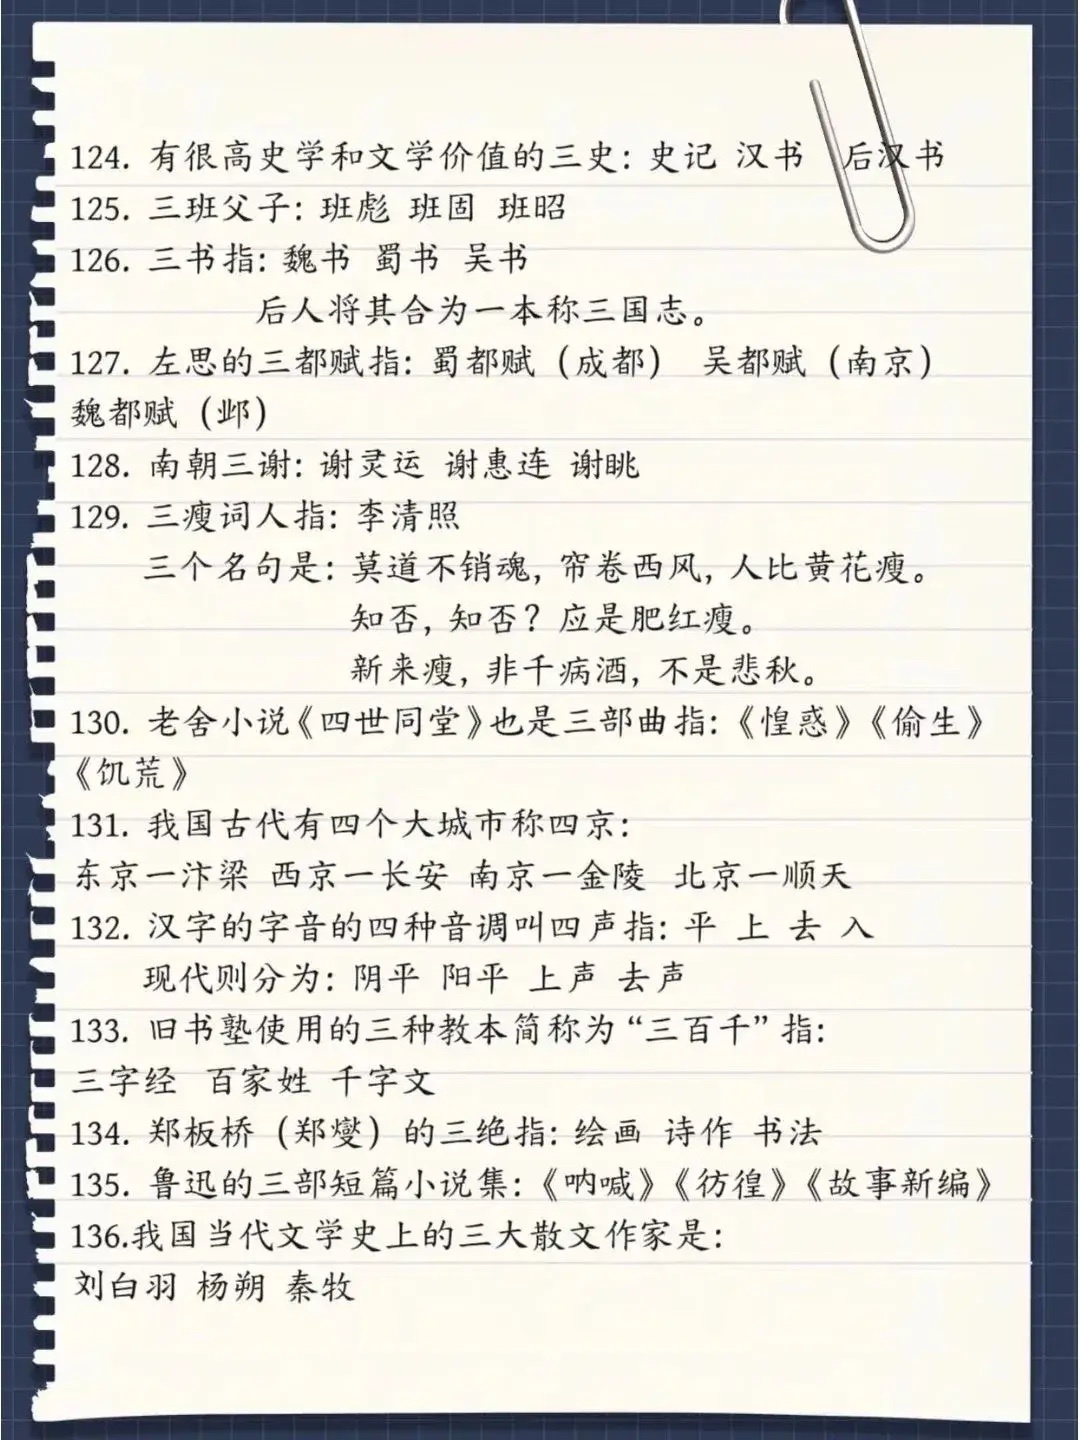 124. 有很高史学和文学价值的三史: 史记 汉书 后汉书
125. 三班父子: 班彪 班固 班昭
126. 三书指: 魏书 蜀书 吴书
后人将其合为一本称三国志。
127. 左思的三都赋指: 蜀都赋 (成都) 吴都赋 (南京)
魏都赋 (邺)
128. 南朝三谢: 谢灵运 谢惠连 谢眺
129. 三瘦词人指: 李清照
三个名句是: 莫道不销魂, 帘卷西风, 人比黄花瘦。
知否, 知否? 应是肥红瘦。
新来瘦, 非千病酒, 不是悲秋。
130. 老舍小说《四世同堂》也是三部曲指:《惶惑》《偷生》
《饥荒》
131. 我国古代有四个大城市称四京:
东京一汴梁 西京一长安 南京一金陵 北京一顺天
132. 汉字的字音的四种音调叫四声指: 平 上 去 入
现代则分为: 阴平 阳平 上声 去声
133. 旧书塾使用的三种教本简称为“三百千”指:
三字经 百家姓 千字文
134. 郑板桥 (郑燮) 的三绝指: 绘画 诗作 书法
135. 鲁迅的三部短篇小说集:《呐喊》《彷徨》《故事新编》
136.我国当代文学史上的三大散文作家是:
刘白羽 杨朔 秦牧